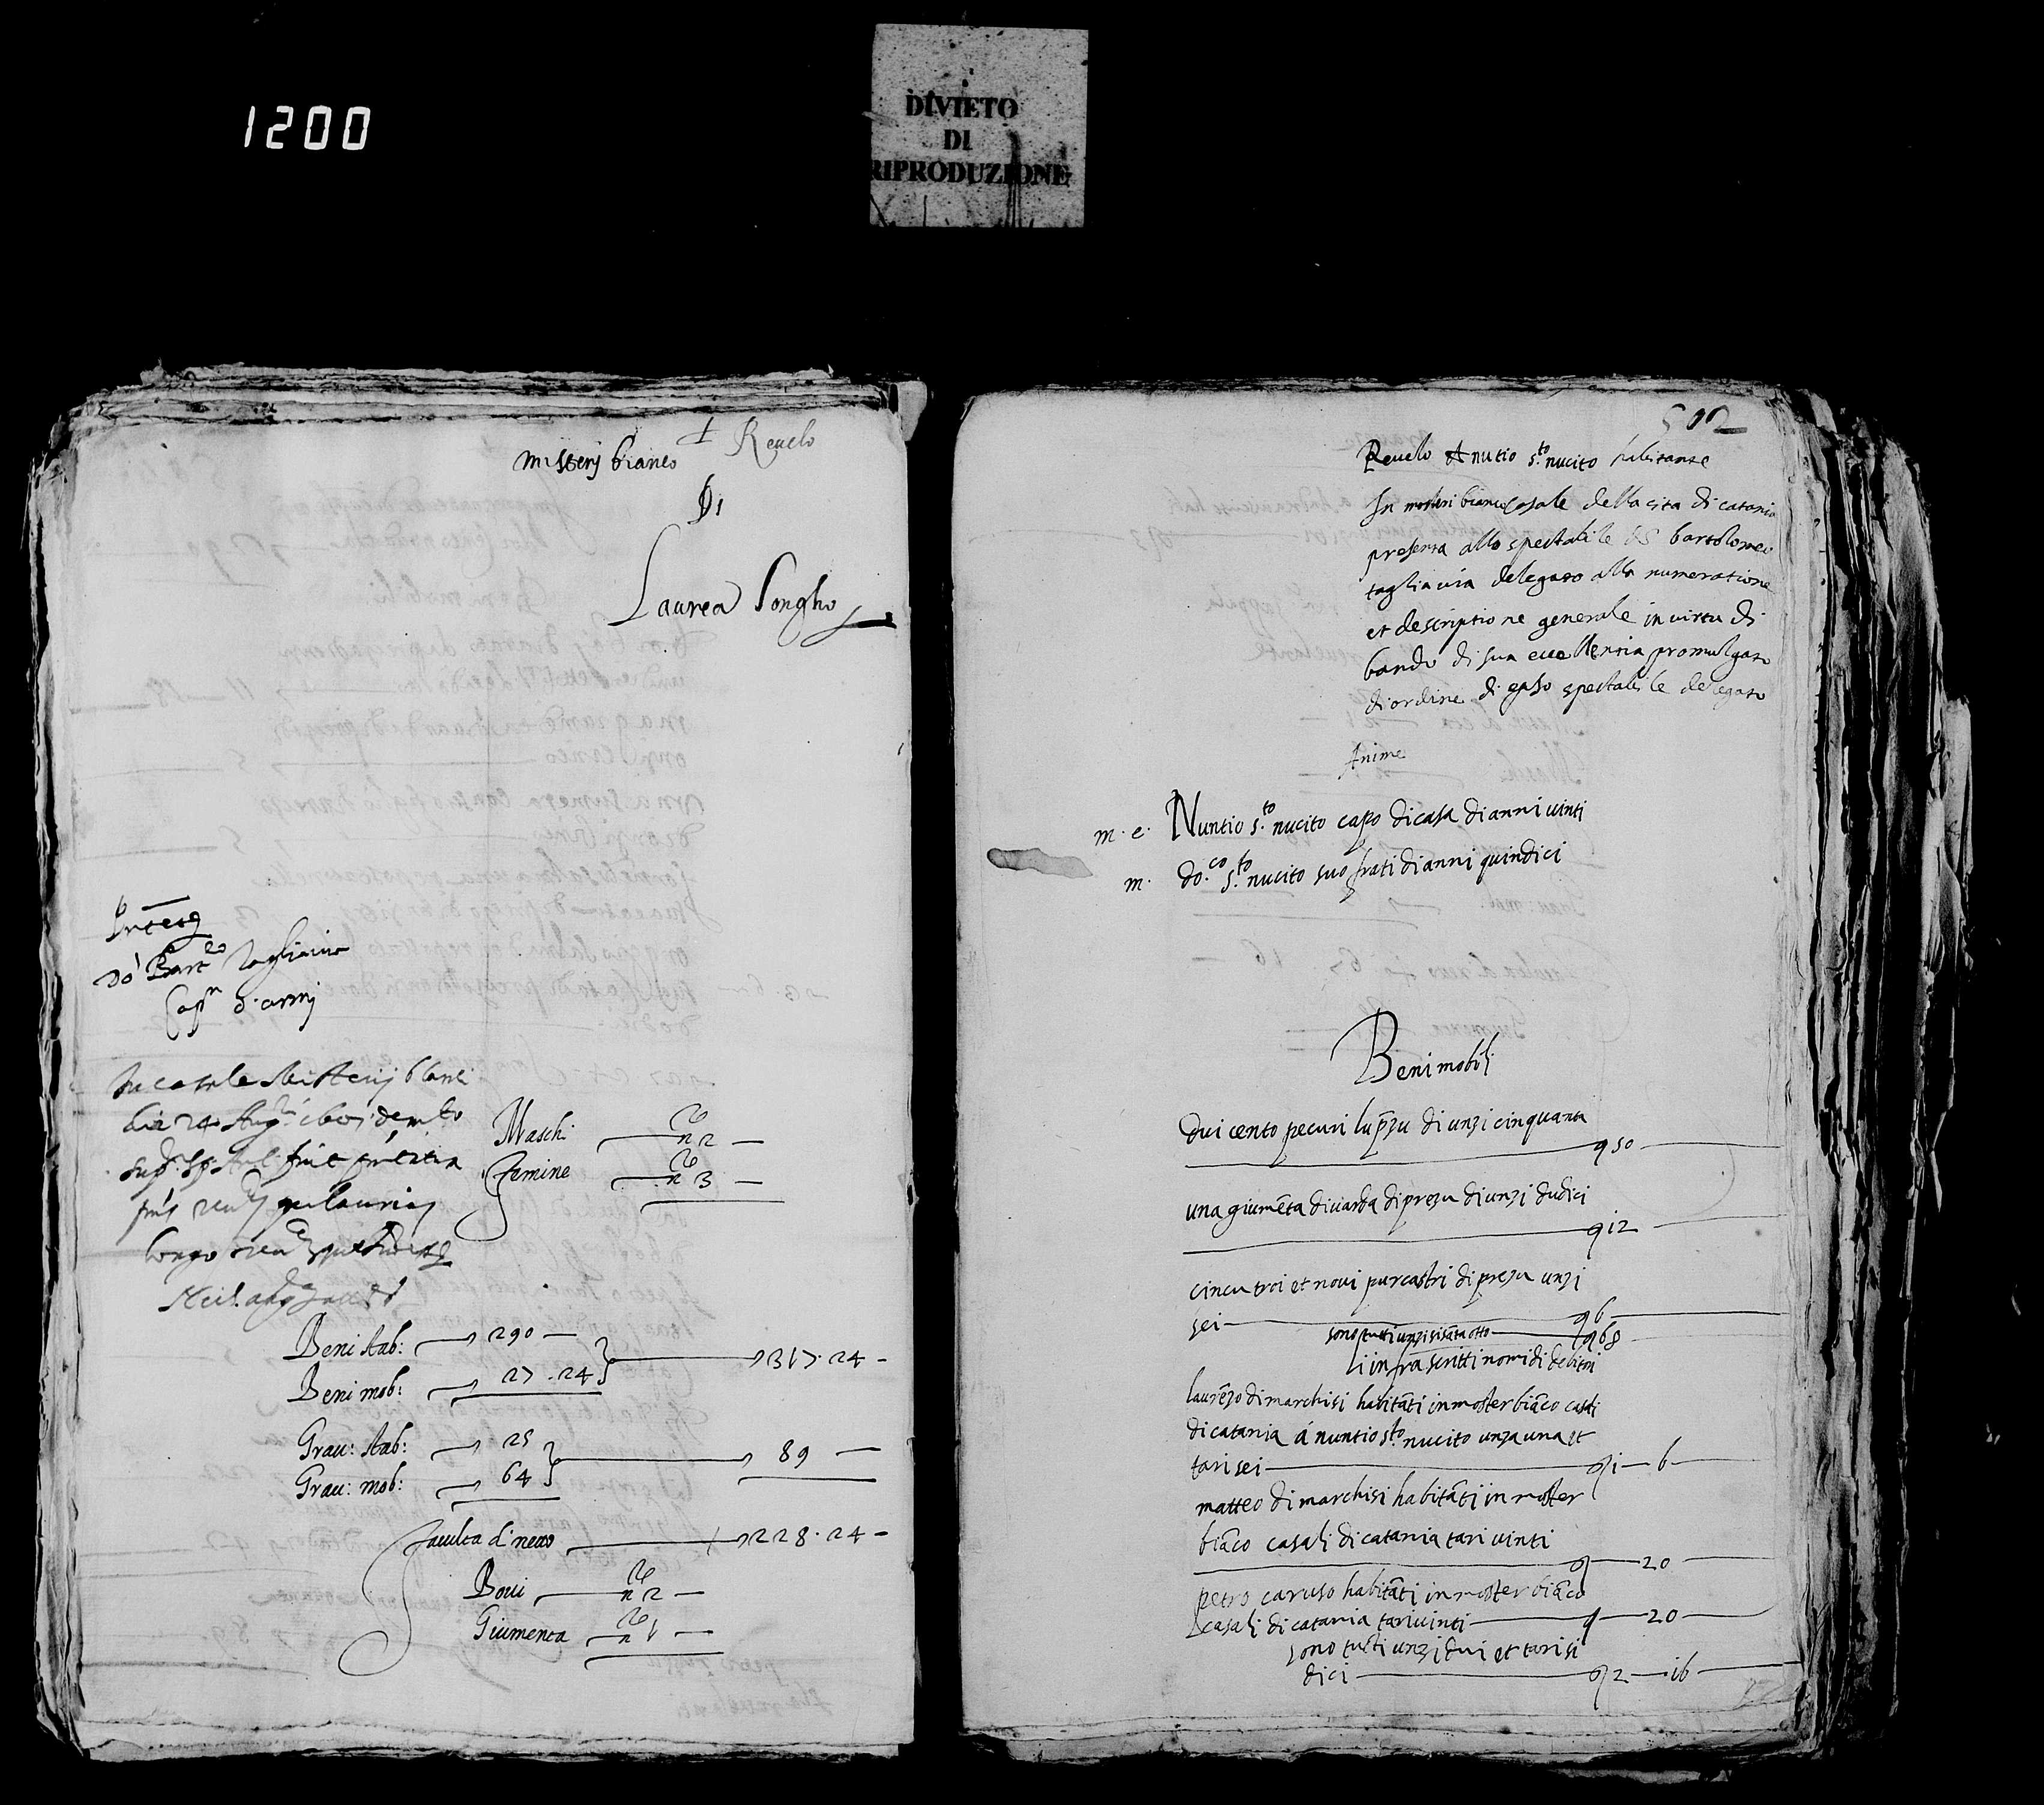 1200
DIVIETO
DI
RIPRODUZIONE
Revelo
misterj bianco
Di
Laurea Longho
Do Bart.eo Tagliavia
Cap.n d'armj
die 24 Aug.ti
Maschi n.o 2
Femine n.o 3
Beni stab: 290
Beni mob: 27.24 317.24
Grav: stab: 25
Grav: mob: 64 89
Faculta di netto 228.24
Bovi n.o 2
Giumenta n.o 1
502
Revelo A nutio s.to nucito habitante
In mosteri bianco casale della cita di catania
presenta allo spectabile bartolomeo
tagliavia delegato alla numeratione
et descriptione generale in virtu di
bando di sua eccellentia promulgato
di ordine di epso spectabile delegato
Anime
m. c. Nuntio s.to nucito capo di casa di anni vinti
m. do.co s.to nucito suo frati di anni quindici
Beni mobili
dui cento pecuri lu prezu di unzi cinquanta
50
una giumēta di varda di prezu di unzi dudici
12
cincu troi et novi purcastri di prezu unzi
sei 6
sono tutti unzi sisāta otto 68
li infrascritti nomi di debitori
laurēzo di marchisi habitāti in moster biāco casali
di catania á nuntio s.to nucito unza una et
tari sei 1 6
matteo di marchisi habitāti in moster
biāco casali di catania tari vinti
20
petro caruso habitāti in moster biāco
casali di catania tari vinti 20
sono tutti unzi dui et tari si
dici 2 16